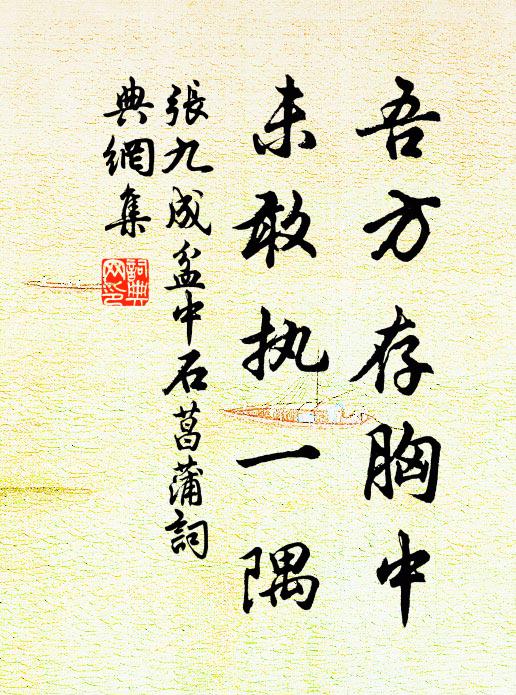 吾方存胸中
未敢执一隅
張九成盆中石菖蒲詞
典網集
詞典网印